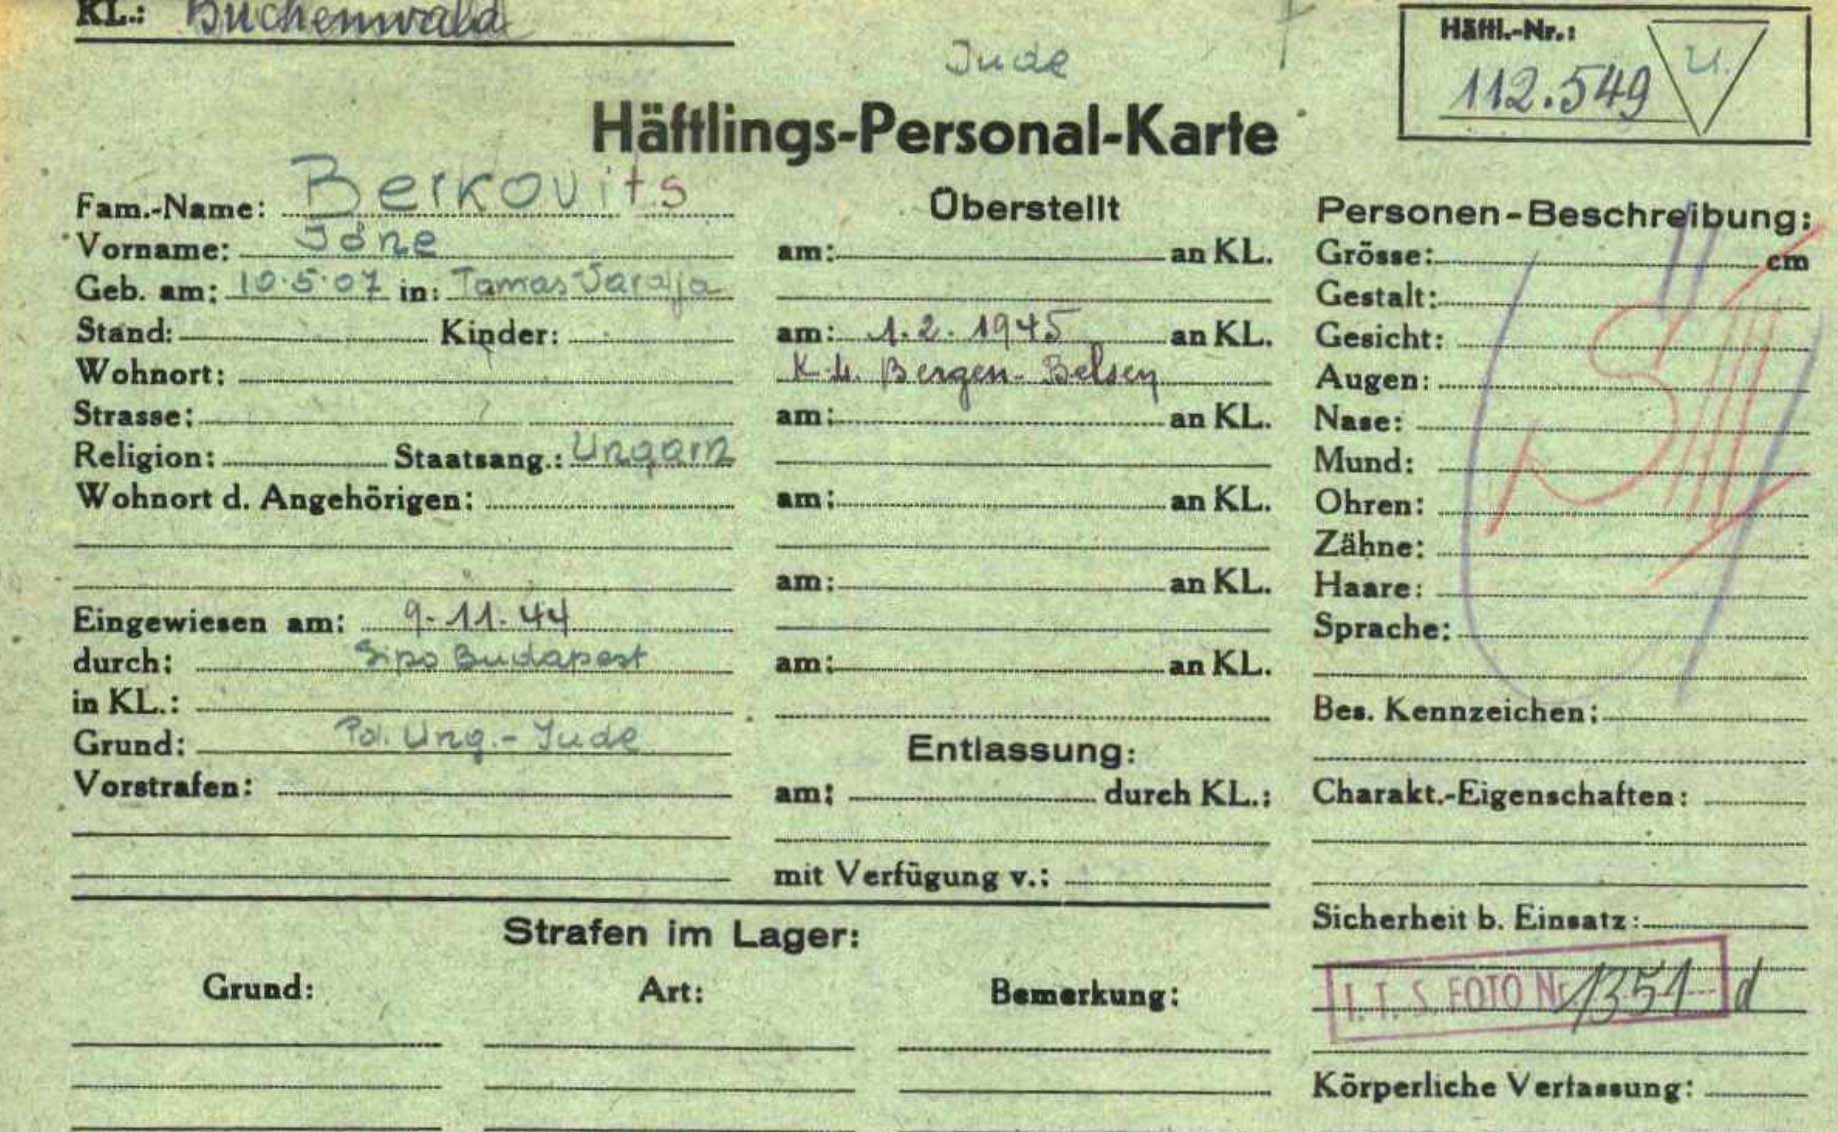 KL.: Buchenwald
Jude
Häftl.-Nr.:
112.549 U.
Häftlings-Personal-Karte
Fam.-Name: Berkovits
Vorname: Jóne
Geb. am: 10.5.07 in: Tamas Varalja
Stand: Kinder:
Wohnort:
Strasse:
Religion: Staatsang.: Ungarn
Wohnort d. Angehörigen:
Eingewiesen am: 9.11.44
durch: Sipo Budapest
in KL.:
Grund: Pol. Ung.-Jude
Vorstrafen:
Überstellt
am: an KL.
am: 1.2.1945 an KL.
K.L. Bergen-Belsen
am: an KL.
am: an KL.
am: an KL.
am: an KL.
Entlassung:
am: durch KL.:
mit Verfügung v.:
Personen-Beschreibung:
Grösse: cm
Gestalt:
Gesicht:
Augen:
Nase:
Mund:
Ohren:
Zähne:
Haare:
Sprache:
Bes. Kennzeichen:
Charakt.-Eigenschaften:
Sicherheit b. Einsatz:
I.T.S. FOTO Nr. 1351 d
Körperliche Verfassung:
Strafen im Lager:
Grund: Art: Bemerkung: